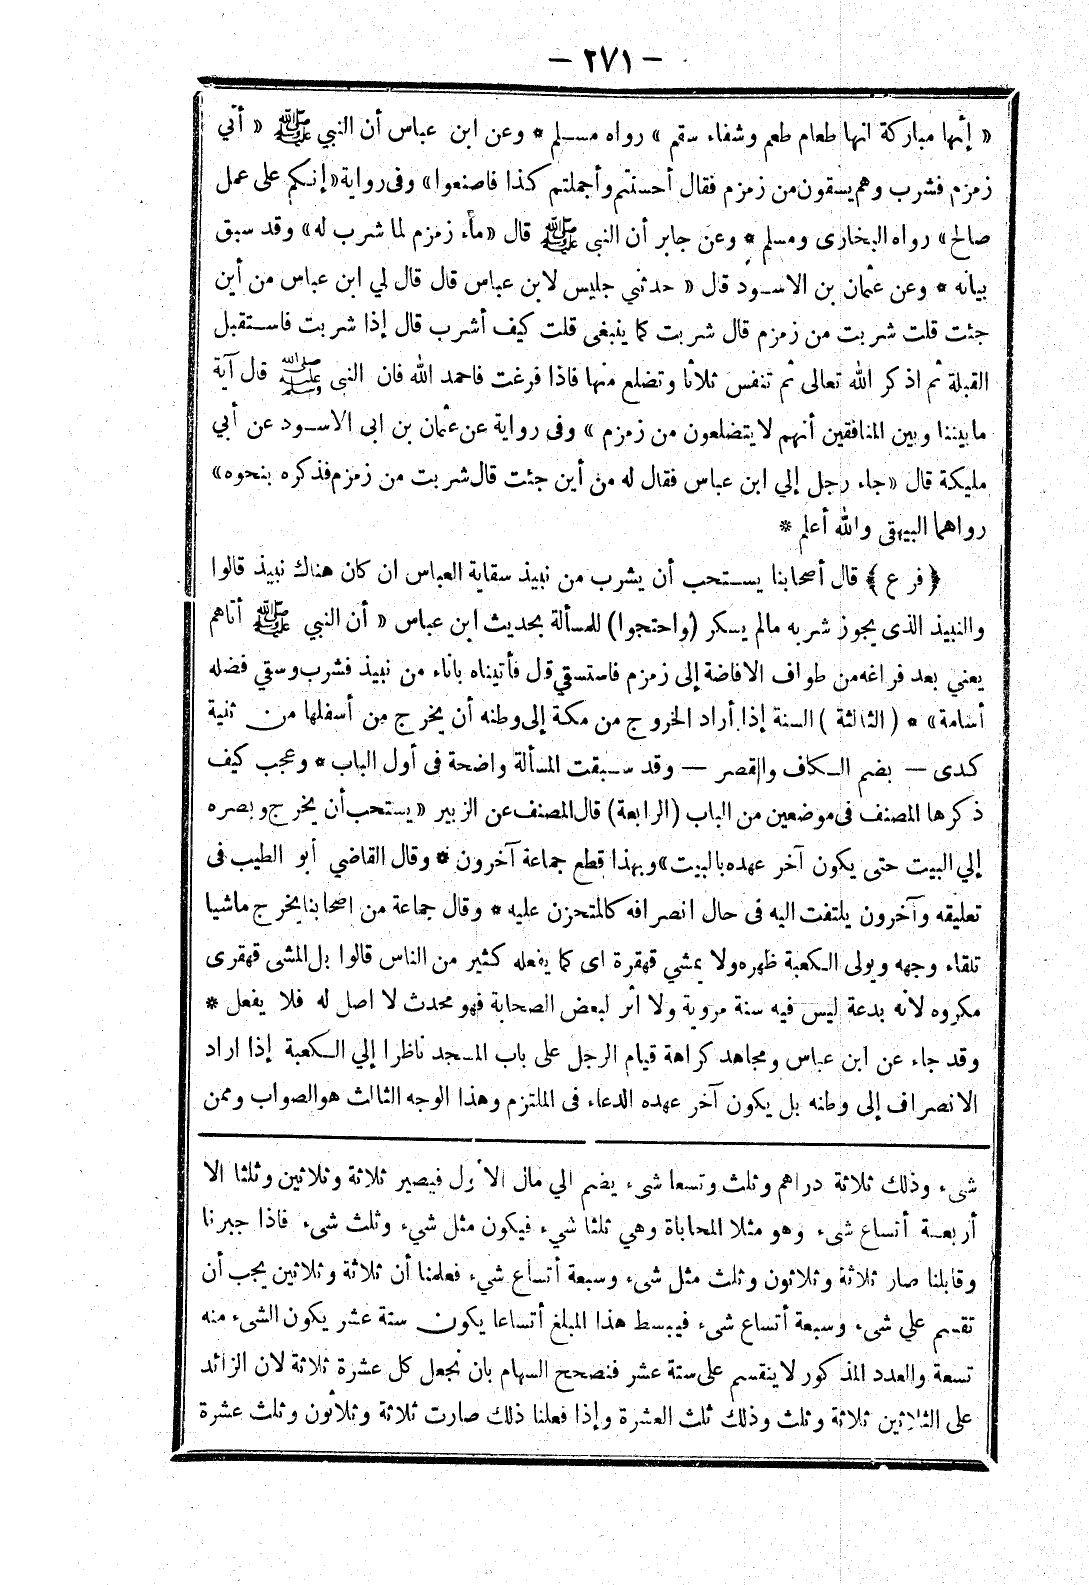 — ٢٧١ —
« إنها مباركة انها طعام طعم وشفاء سقم » رواه مسلم * وعن ابن عباس أن النبي ﷺ « أتي
زمزم فشرب وهم يسقون من زمزم فقال أحسنتم وأجملتم كذا فاصنعوا» وفى رواية «إنكم على عمل
صالح» رواه البخارى ومسلم * وعن جابر أن النبى ﷺ قال «ماء زمزم لما شرب له» وقد سبق
بيانه * وعن عثمان بن الاسود قال « حدثني جليس لابن عباس قال قال لي ابن عباس من أين
جئت قلت شربت من زمزم قال شربت كما ينبغى قلت كيف أشرب قال إذا شربت فاستقبل
القبلة ثم اذكر الله تعالى ثم تنفس ثلاثا وتضلع منها فاذا فرغت فاحمد الله فان النبى ﷺ قال آية
مابيننا وبين المنافقين أنهم لا يتضلعون من زمزم » وفى رواية عن عثمان بن ابى الاسود عن أبي
مليكة قال «جاء رجل إلي ابن عباس فقال له من أين جئت قال شربت من زمزم فذكره بنحوه»
رواهما البيهقى والله أعلم *
﴿ فرع ﴾ قال أصحابنا يستحب أن يشرب من نبيذ سقاية العباس ان كان هناك نبيذ قالوا
والنبيذ الذى يجوز شربه مالم يسكر (واحتجوا) للمسألة بحديث ابن عباس « أن النبي ﷺ أتاهم
يعني بعد فراغه من طواف الافاضة إلى زمزم فاستسقي قال فأتيناه باناء من نبيذ فشرب وسقي فضله
أسامة» * ( الثالثة ) السنة إذا أراد الخروج من مكة إلى وطنه أن يخرج من أسفلها من ثنية
كدى — بضم الكاف والقصر — وقد سبقت المسألة واضحة فى أول الباب * وعجب كيف
ذكرها المصنف فى موضعين من الباب (الرابعة) قال المصنف عن الزبير «يستحب أن يخرج وبصره
إلي البيت حتى يكون آخر عهده بالبيت» وبهذا قطع جماعة آخرون * وقال القاضي أبو الطيب فى
تعليقه وآخرون يلتفت اليه فى حال انصرافه كالمتحزن عليه * وقال جماعة من اصحابنا يخرج ماشيا
تلقاء وجهه ويولى الكعبة ظهره ولا يمشي قهقرة اى كما يفعله كثير من الناس قالوا بل المشى قهقرى
مكروه لأنه بدعة ليس فيه سنة مروية ولا أثر لبعض الصحابة فهو محدث لا اصل له فلا يفعل *
وقد جاء عن ابن عباس ومجاهد كراهة قيام الرجل على باب المسجد ناظرا إلي الكعبة إذا اراد
الانصراف إلى وطنه بل يكون آخر عهده الدعاء فى الملتزم وهذا الوجه الثالث هو الصواب وممن
شىء وذلك ثلاثة دراهم وثلث وتسعا شىء يضم الي مال الأول فيصير ثلاثة وثلاثين وثلثا الا
أربعة أتساع شىء وهو مثلا المحاباة وهي ثلثا شيء فيكون مثل شيء وثلث شىء فاذا جبرنا
وقابلنا صار ثلاثة وثلاثون وثلث مثل شىء وسبعة أتساع شيء فعلمنا أن ثلاثة وثلاثين يجب أن
تقسم علي شىء وسبعة أتساع شىء فيبسط هذا المبلغ أتساعا يكون ستة عشر يكون الشىء منه
تسعة والعدد المذكور لا ينقسم على ستة عشر فنصحح السهام بان نجعل كل عشرة ثلاثة لان الزائد
على الثلاثين ثلاثة وثلث وذلك ثلث العشرة وإذا فعلنا ذلك صارت ثلاثة وثلاثون وثلث عشرة